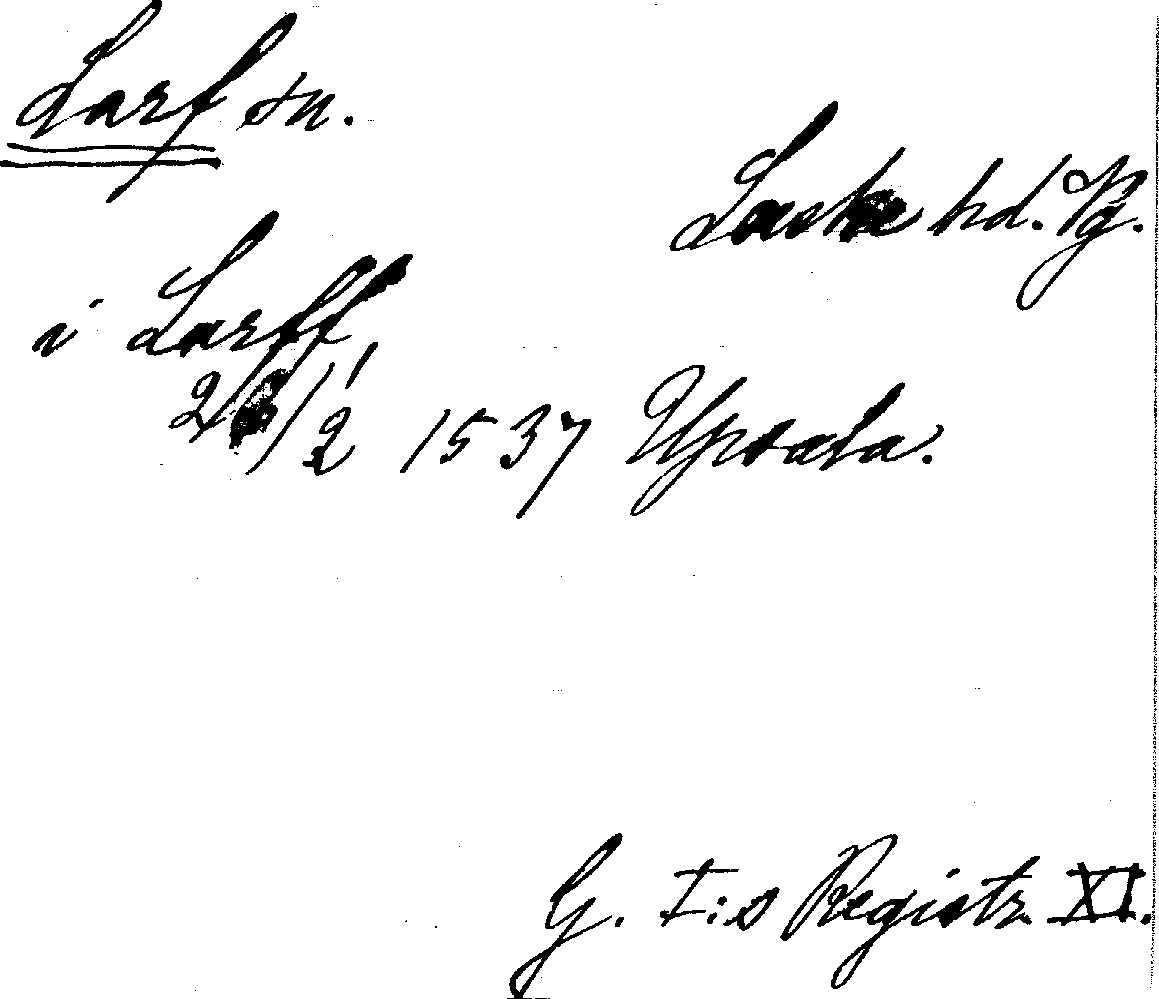 Larf sn.
Laske hd. Vg.
i Larff
2/2 1537 Upsala.
G. I:s Registr. XI.